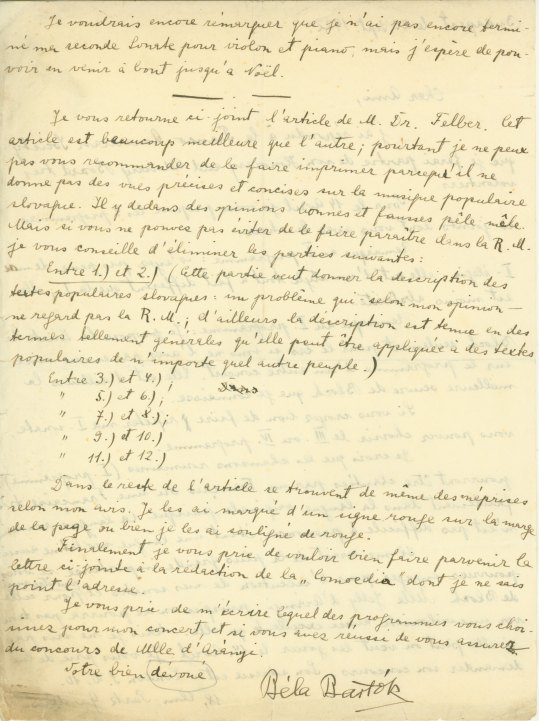 Je voudrais encore rémarquer que je n'ai pas encore termi-
né ma seconde Sonate pour violon et piano, mais j'espère de pou-
voir en venir à bout jusqu'à Noël.
Je vous retourne ci-joint l'article de M. Dr. Felber. Cet
article est beaucoup meilleure que l'autre; pourtant je ne peux
pas vous recommander de le faire imprimer parcequ'il ne
donne pas des vues précises et concises sur la musique populaire
slovaque. Il y dedans des opinions bonnes et fausses pêle mêle.
Mais si vous ne pouvez pas éviter de le faire paraître dans la R. M.
je vous conseille d'éliminer les parties suivantes:
Entre 1.) et 2.) (Cette partie veut donner la description des
textes populaires slovaques: un problème qui selon mon opinion
ne regard pas la R. M.; d'ailleurs la déscription est tenue en des
termes tellement générales qu'elle peut être appliquée à des textes
populaires de n'importe quel autre peuple.)
Entre 3.) et 4.);
" 5.) et 6.);
" 7.) et 8.);
" 9.) et 10.)
" 11.) et 12.)
Dans le reste de l'article se trouvent de même des méprises
selon mon avis. Je les ai marqué d'un signe rouge sur la marge
de la page ou bien je les ai souligné de rouge.
Finalement je vous prie de vouloir bien faire parvenir la
lettre ci-jointe à la rédaction de la „Comoedia" dont je ne sais
point l'adresse.
Je vous prie de m'écrire lequel des programmes vous choi-
sissez pour mon concert et si vous avez réussi de vous assurer
du concours de Mlle d'Arányi.
Votre bien dévoué
Béla Bartók